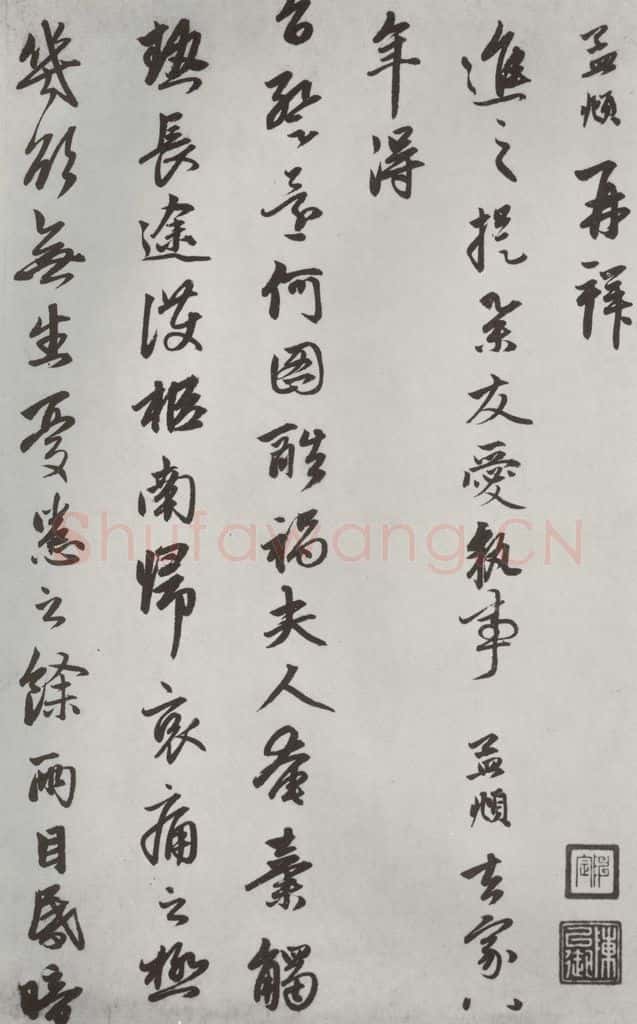 孟頫再拜
進之提舉友愛執事 孟頫去家八
年得
旨暫還何圖酷禍夫人奄棄觸
熱長途護柩南歸哀痛之極
幾欲無生憂患之餘兩目昏暗
Shufawang.CN